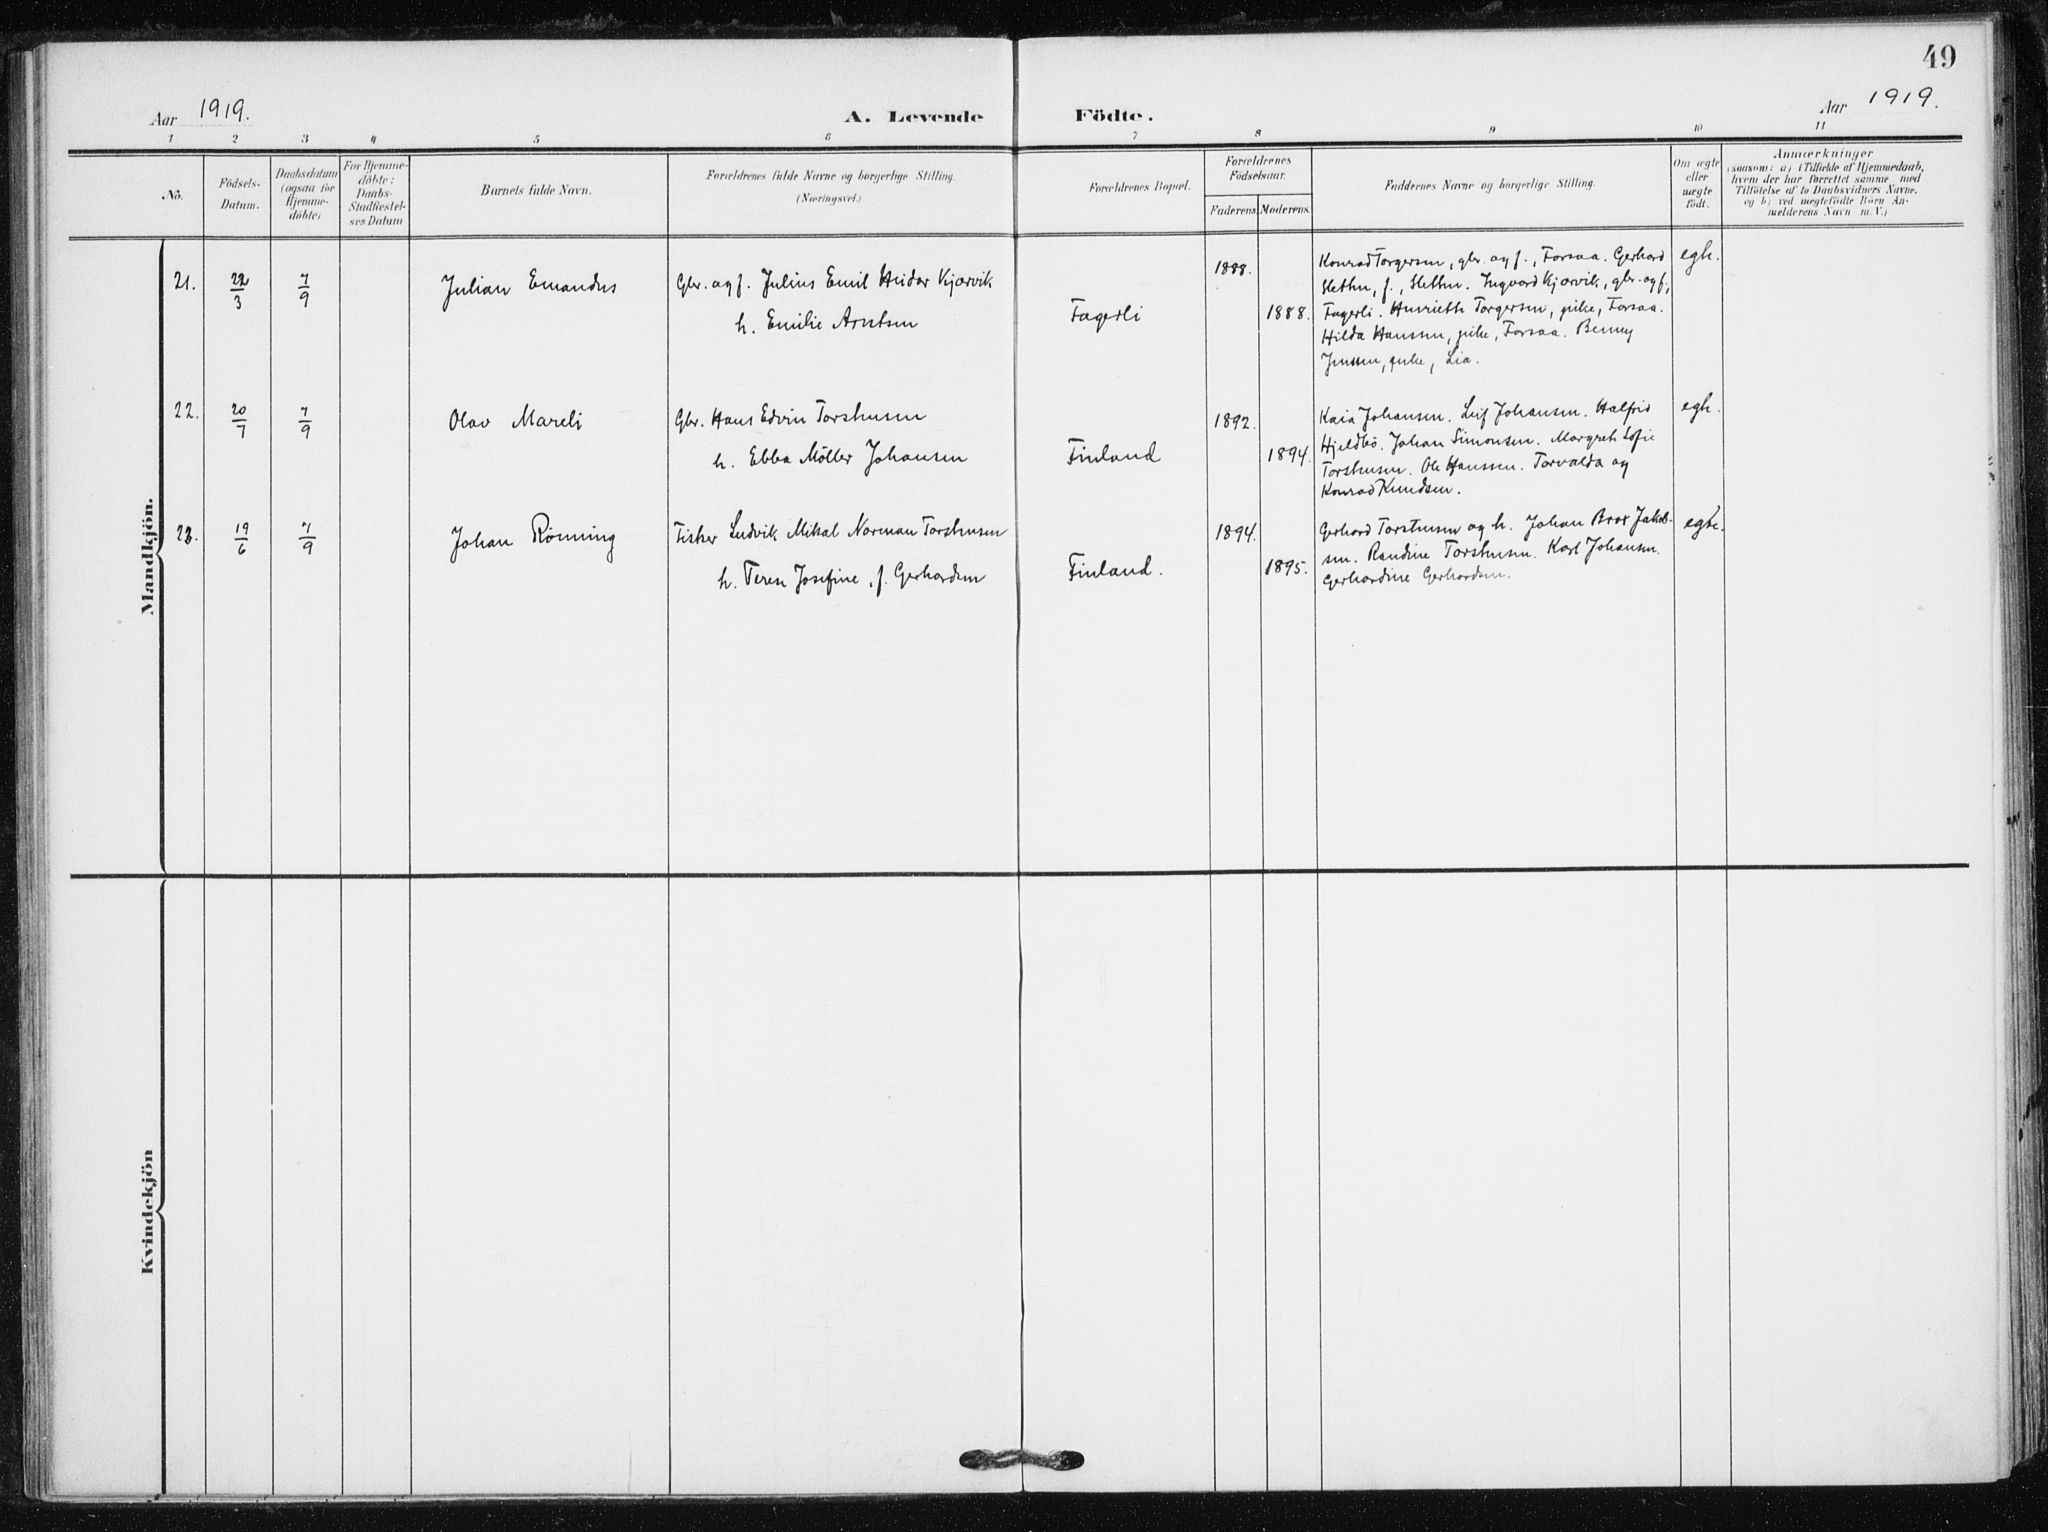 49
Aar 1919.
A. Levende Födte.
Aar 1919.
1 2 3 4 5 6 7 8 9 10 11
No.
Födsels-
Datum.
Daabsdatum
(ogsaa for
Hjemme-
döbte)
For Hjemme-
döbte:
Daabs-
Stadfæstel-
ses Datum
Barnets fulde Navn.
Forældrenes fulde Navne og borgerlige Stilling.
(Næringsvei.)
Forældrenes Bopæl.
Forældrenes
Födselsaar.
Faderens. Moderens.
Faddernes Navne og borgerlige Stilling.
Om ægte
eller
uægte
födt.
Anmærkninger
(saasom: a) i Tilfælde af Hjemmedaab,
hvem der har forrettet samme med
Tilföielse af to Daabsvidners Navne,
og b) ved uægtefödte Börn An-
melderens Navn m. V.)
Mandkjön.
21. 22/3 7/9 Julian Emandus
Gbr. og f. Julius Emil Hidar Kjærvik
h. Emilie Arntsen
Fagerli
1888.
1888.
Konrad Torgersen, gbr. og f., Forsaa. Gerhard
Sletten, f., Sletten. Ingvard Kjærvik, gbr. og f,
Fagerli. Henriette Torgersen, pike, Forsaa.
Hilda Hanssen, pike, Forsaa. Benny
Jenssen, pike, Lia.
egte.
22. 20/7 7/9 Olav Mareli
Gbr. Hans Edvin Torstensen
h. Ebba Möller Johansen
Finland
1892.
1894.
Kaia Johansen. Leif Johansen. Halfrid
Hjeldbö. Johan Simonsen. Margreth Sofie
Torstensen. Ole Hanssen. Torvalda og
Konrad Knudsen.
egte.
23. 19/6 7/9 Johan Rönning
Fisker Ludvik Mikal Norman Torstensen
h. Teres Josefine, f. Gerhardsen
Finland.
1894.
1895.
Gerhard Torstensen og h. Johan Brox Jakob-
sen. Randine Torstensen. Karl Johansen.
Gerhardine Gerhardsen.
egte.
Kvindekjön